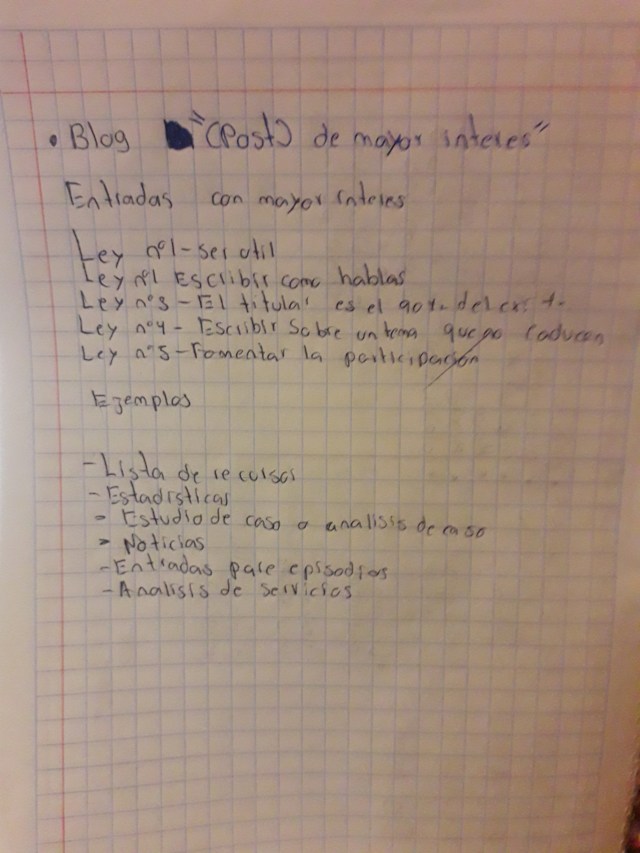 • Blog "(Post) de mayor interes"
Entradas con mayor interes
Ley n°1-ser util
Ley n°1 Escribir como hablas
Ley n°3-El titular es el del
Ley n°4- Escribir sobre un tema que no caducan
Ley n°5-Fomentar la participación
Ejemplos
-Lista de recursos
-Estadisticas
- Estudio de caso o analisis de caso
- Noticias
-Entradas episodios
-Analisis de servicios